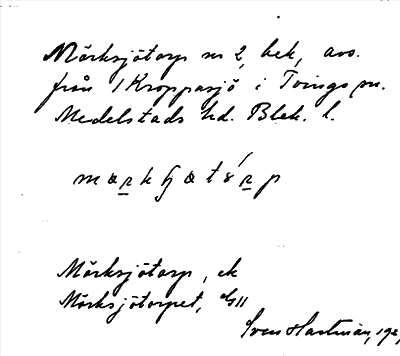 Mörksjötorp nr 2, bek, avs.
från 1 Kroppasjö i Tvings sn.
Medelstads hd. Blek. l.
Mörksjötorp, ek
Mörksjötorpet,
Sven Hartman,